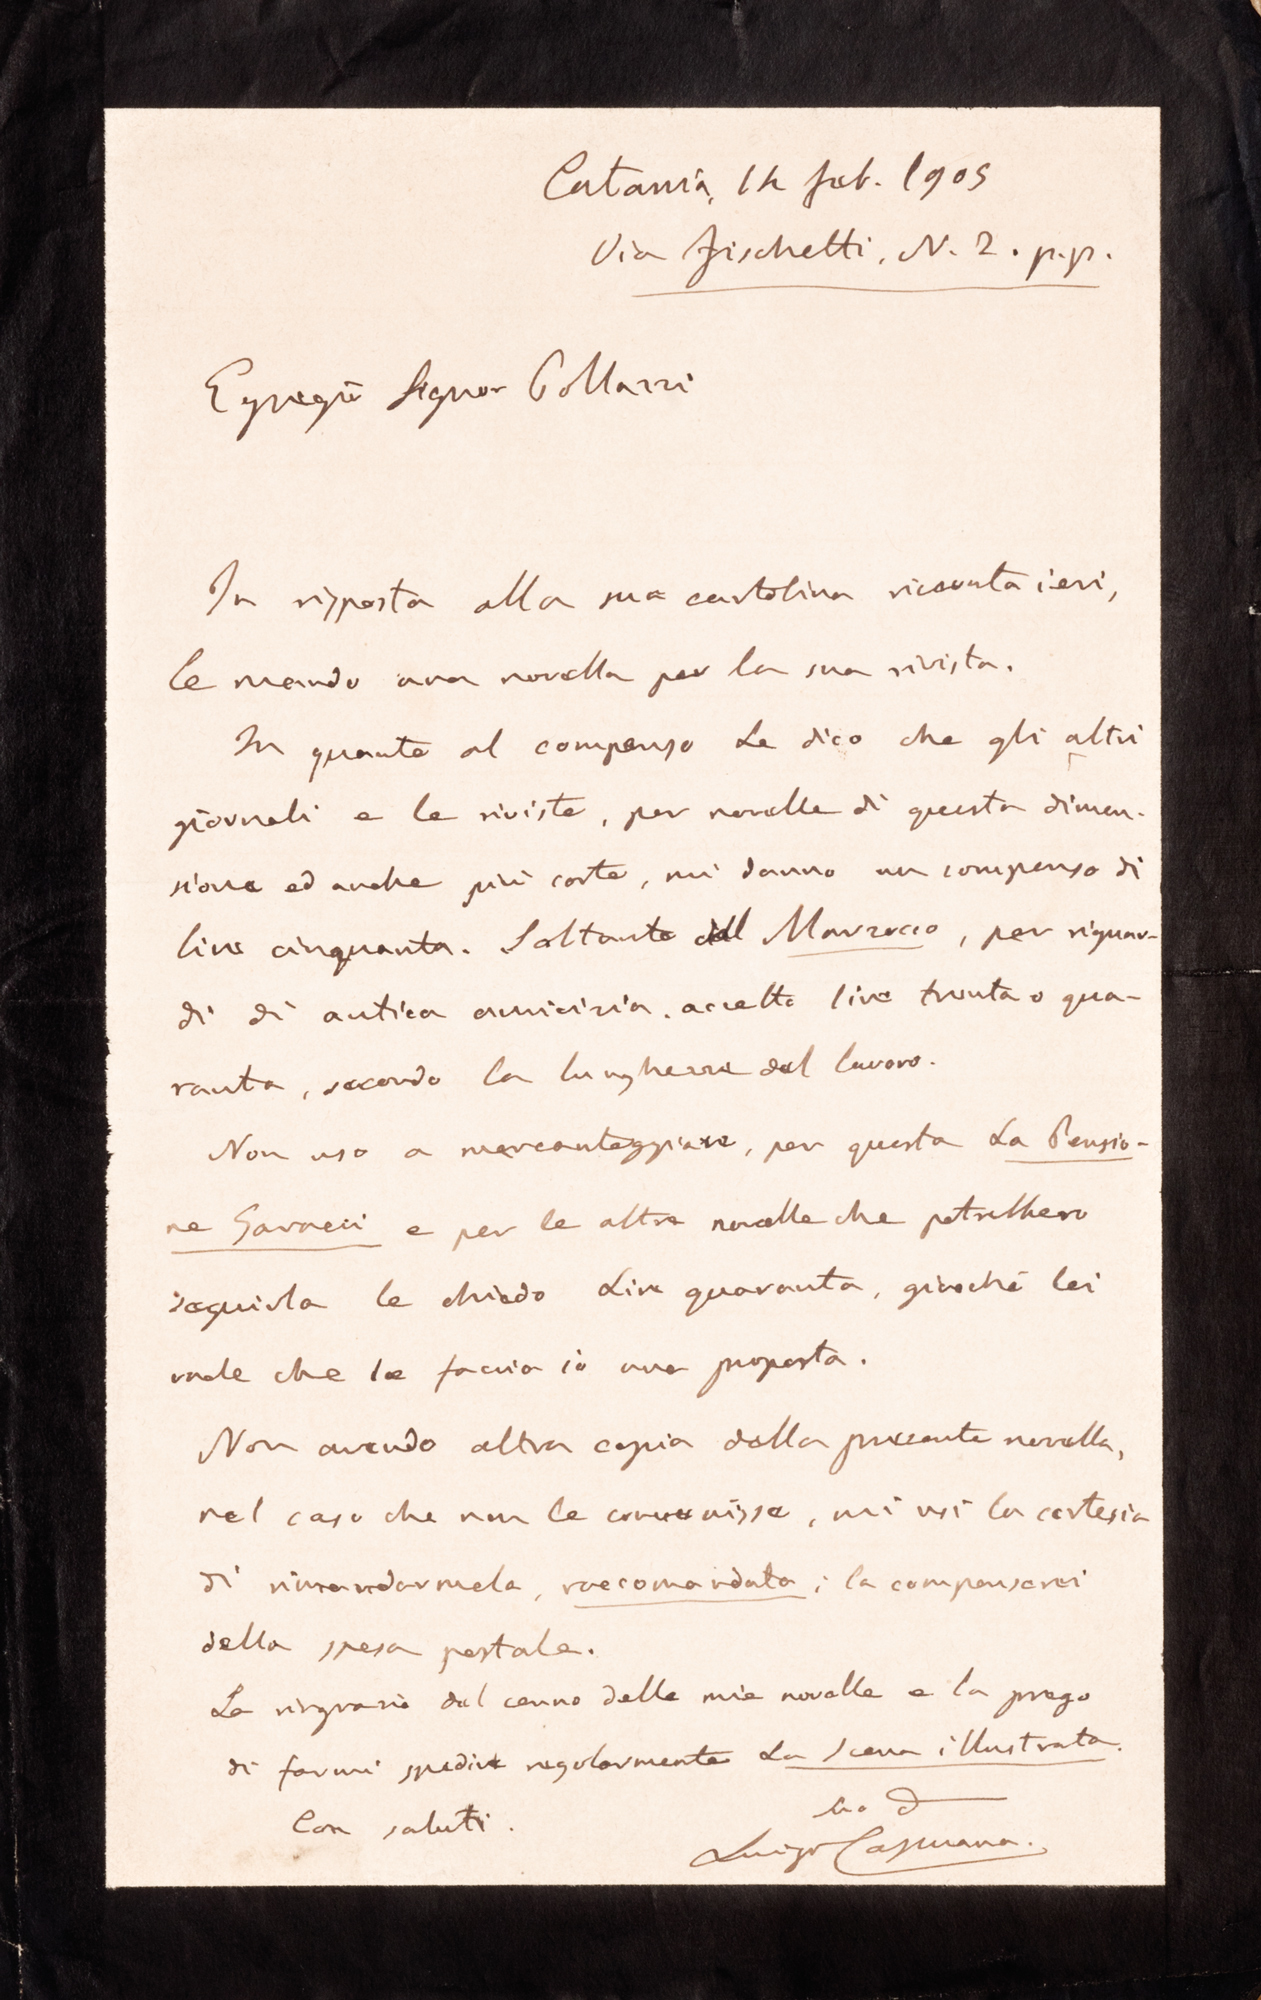 Catania, 14 feb. 1905
Via Fischetti, N. 2. p.p.
Egregio Signor Pollazzi
In risposta alla sua cartolina ricevuta ieri,
le mando una novella per la sua rivista.
In quanto al compenso Le dico che gli altri
giornali e le riviste, per novelle di questa dimen-
sione ed anche più corte, mi danno un compenso di
lire cinquanta. Soltanto dal Marzocco, per riguar-
di di antica amicizia, accetto lire trenta o qua-
ranta, secondo la lunghezza del lavoro.
Non uso a mercanteggiare, per questa La Pensio-
ne e per le altre novelle che potrebbero
seguirla le chiedo Lire quaranta, giacché lei
vuole che le faccia io una proposta.
Non avendo altra copia della presente novella,
nel caso che non le convenisse, mi usi la cortesia
di rimandarmela, raccomandata; la compenserei
della spesa postale.
La ringrazio del cenno delle mie novelle e la prego
di farmi spedire regolarmente La Scena illustrata.
Con saluti.
Luigi Capuana.